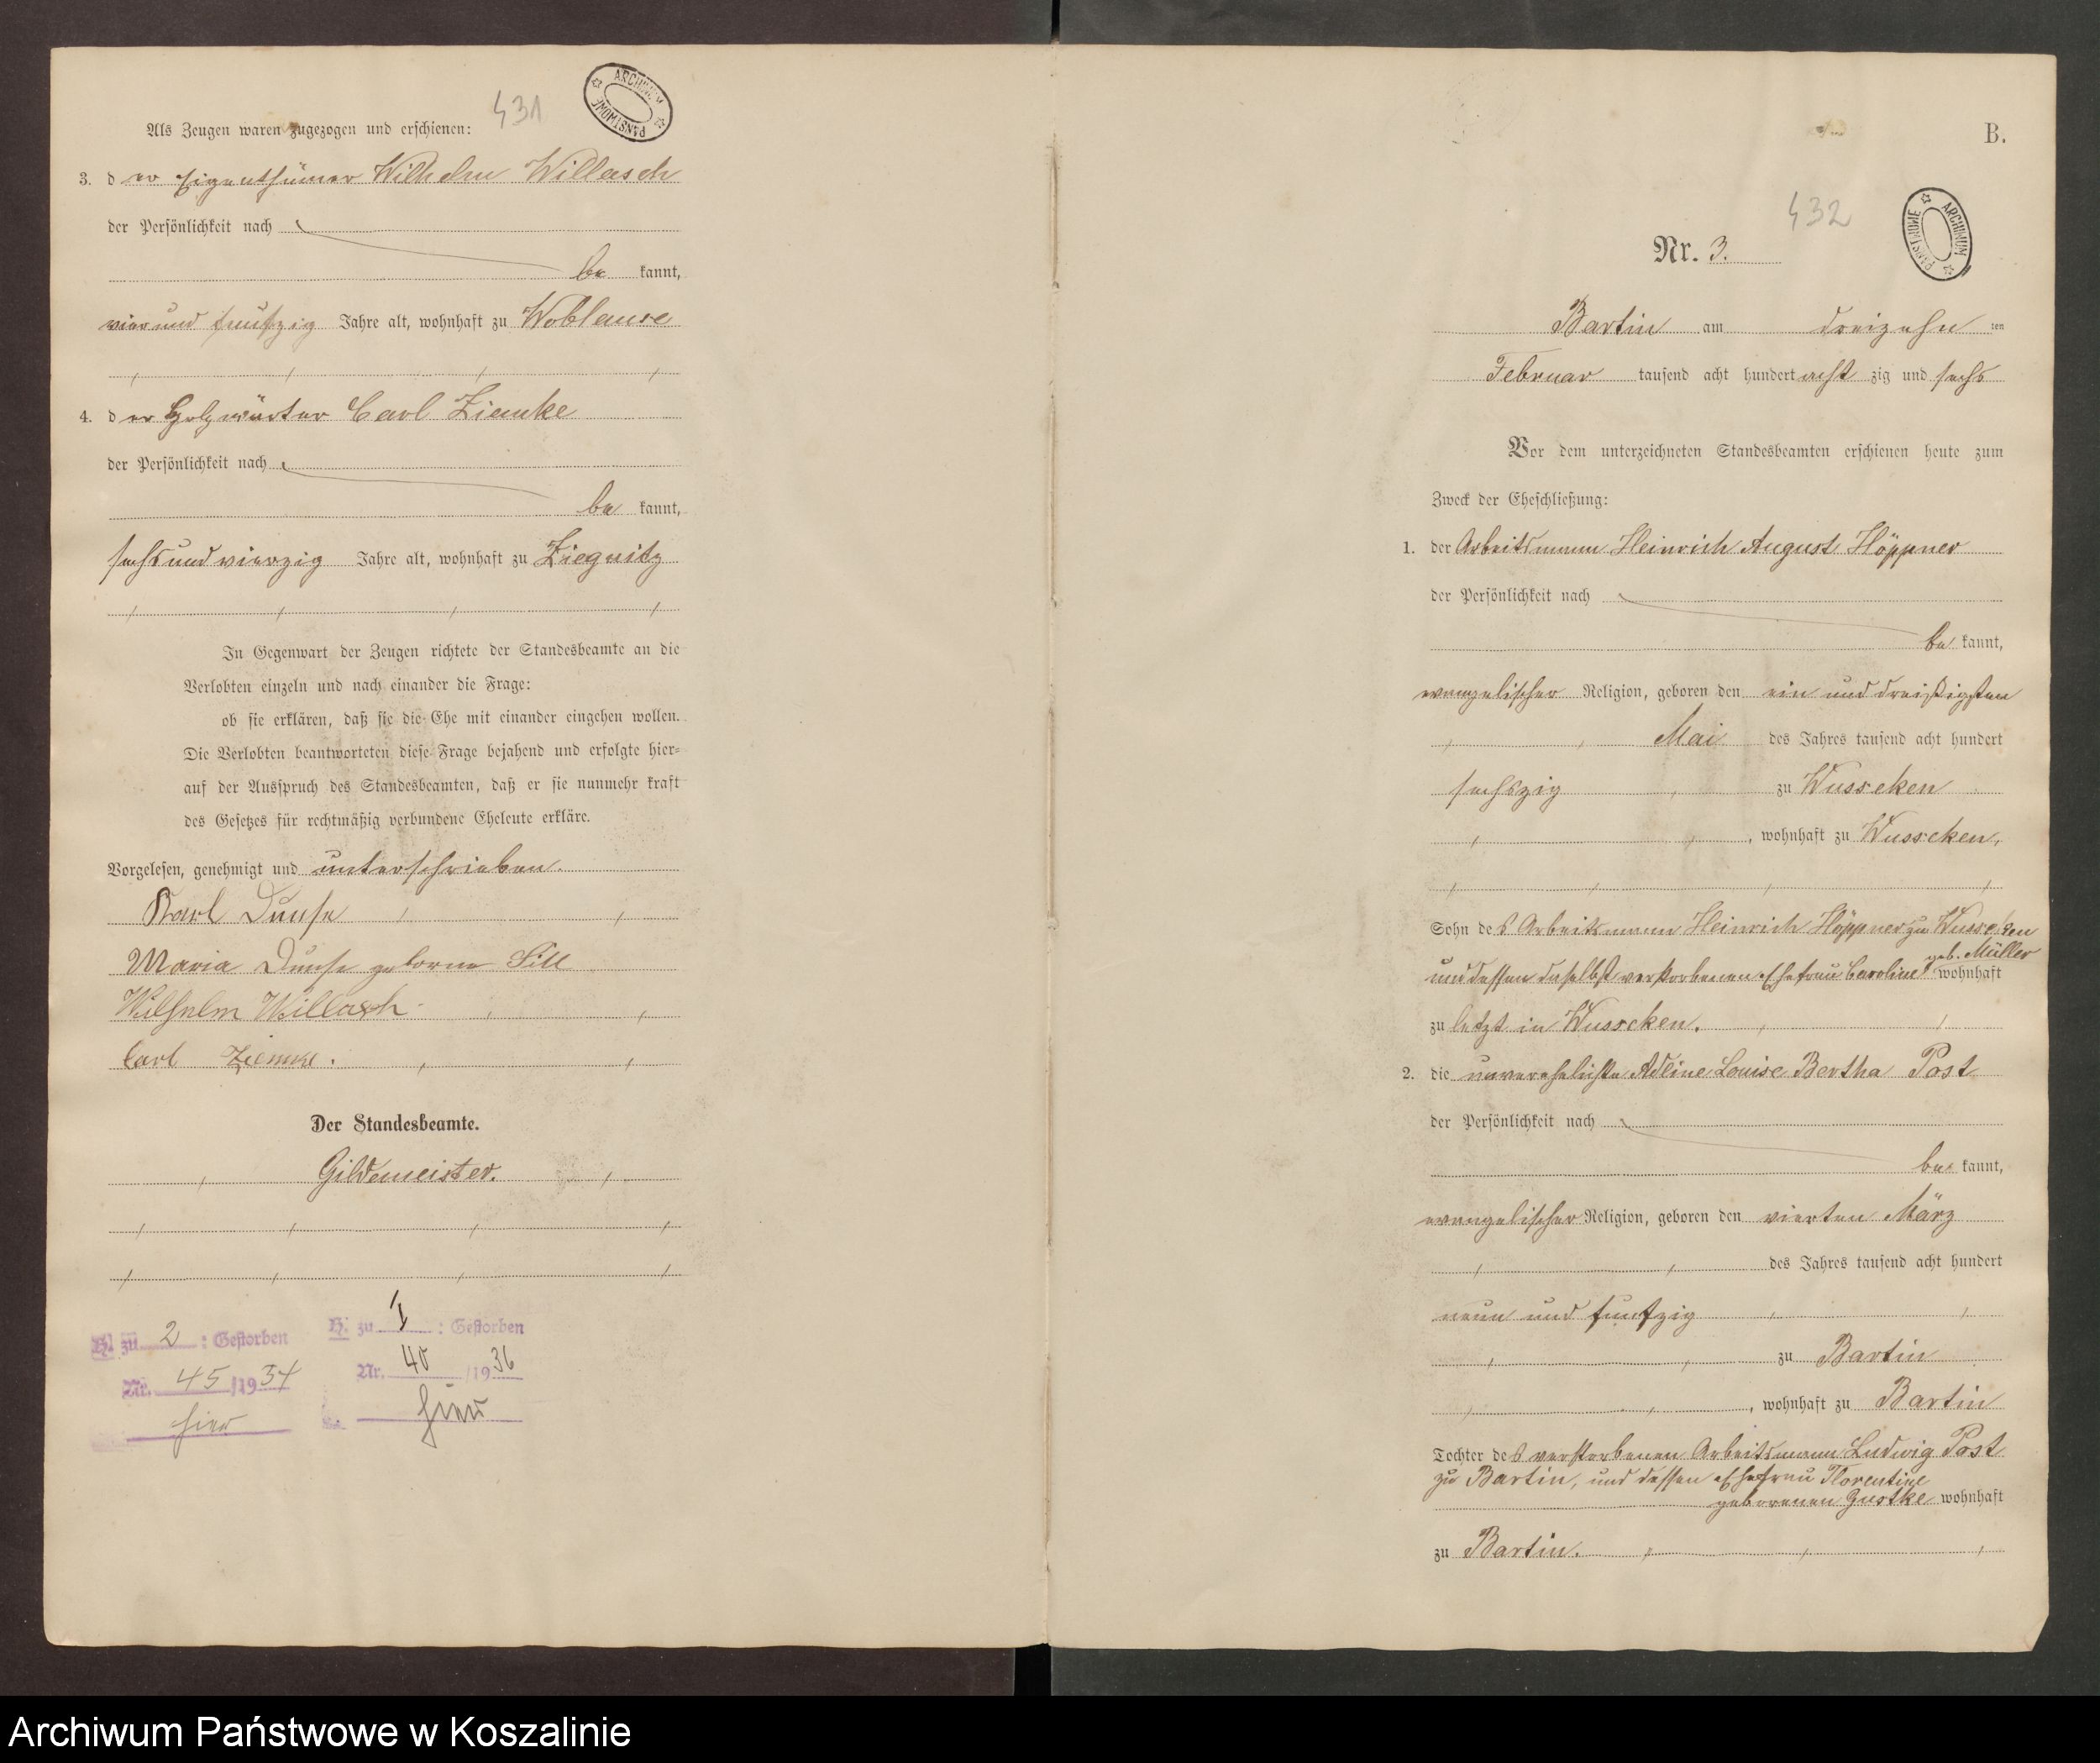 431
ARCHIWUM PAŃSTWOWE
Als Zeugen waren zugezogen und erschienen:
3. der Eigenthümer Wilhelm Willasch
der Persönlichkeit nach
be kannt,
vier und funfzig Jahre alt, wohnhaft zu Woblanse
4. der Holzwärter Carl Ziemke
der Persönlichkeit nach
be kannt,
sechs und vierzig Jahre alt, wohnhaft zu Ziegnitz
In Gegenwart der Zeugen richtete der Standesbeamte an die
Verlobten einzeln und nach einander die Frage:
ob sie erklären, daß sie die Ehe mit einander eingehen wollen.
Die Verlobten beantworteten diese Frage bejahend und erfolgte hier-
auf der Ausspruch des Standesbeamten, daß er sie nunmehr kraft
des Gesetzes für rechtmäßig verbundene Eheleute erkläre.
Vorgelesen, genehmigt und unterschrieben.
Karl Dunse
Maria Dunse geborne Sill
Wilhelm Willasch
Carl Ziemke.
Der Standesbeamte.
Gildemeister.
H. zu 2 : Gestorben
Nr. 45/1934
hier
H. zu 1 : Gestorben
Nr. 40/1936
hier
B.
432
ARCHIWUM PAŃSTWOWE
Nr. 3.
Bartin am dreizehn ten
Februar tausend acht hundert acht zig und sechs
Vor dem unterzeichneten Standesbeamten erschienen heute zum
Zweck der Eheschließung:
1. der Arbeitsmann Heinrich August Höppner
der Persönlichkeit nach
be kannt,
evangelischer Religion, geboren den ein und dreißigsten
Mai des Jahres tausend acht hundert
sechszig zu Wusseken
, wohnhaft zu Wusseken,
Sohn des Arbeitsmann Heinrich Höppner zu Wusseken
und dessen daselbst verstorbenen Ehefrau Caroline geb. Müller wohnhaft
zu letzt in Wusseken.
2. die unverehelichte Adline Louise Bertha Post
der Persönlichkeit nach
be kannt,
evangelischer Religion, geboren den vierten März
des Jahres tausend acht hundert
neun und funfzig
zu Bartin
, wohnhaft zu Bartin
Tochter des verstorbenen Arbeitsmann Ludwig Post
zu Bartin, und dessen Ehefrau Florentine
geborenen Gustke wohnhaft
zu Bartin.
Archiwum Państwowe w Koszalinie